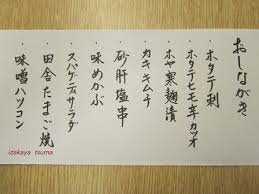 おしながき
・ホタテ刺
・ホタテヒモ辛カツオ
・ホヤ寒麹漬
・カキキムチ
・砂肝塩串
・味めかぶ
・スパゲティサラダ
・田舎たまご焼
・味噌ハツコン
izakaya tsuma